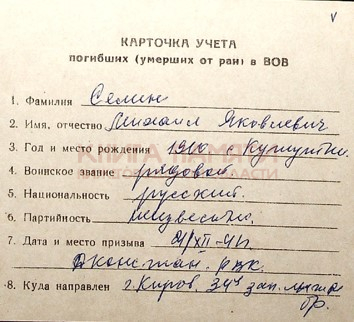 КАРТОЧКА УЧЕТА
погибших (умерших от ран) в ВОВ
1. Фамилия Семин
2. Имя, отчество Михаил Яковлевич
3. Год и место рождения 1910 с.
КНИГА ПАМЯТИ
4. Воинское звание рядовой
ОБЛАСТИ
5. Национальность русский.
6. Партийность неизвестно.
7. Дата и место призыва 21/XII-41
РВК.
8. Куда направлен г. Киров. 34 зап.
бр.